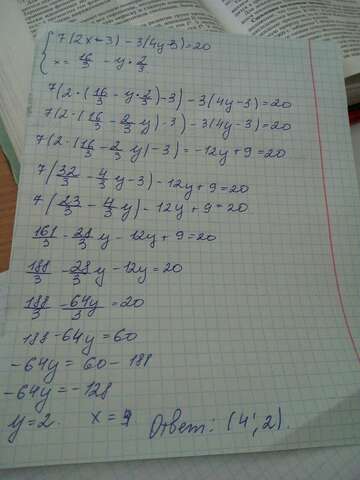 7(2x-3)-3(4y-3)=20
x=16/3-y·2/3
7(2·(16/3-y·2/3)-3)-3(4y-3)=20
7(2·(16/3-2/3y)-3)-3(4y-3)=20
7(2·(16/3-2/3y)-3)=-12y+9=20
7(32/3-4/3y-3)-12y+9=20
7(23/3-4/3y)-12y+9=20
161/3-28/3y-12y+9=20
188/3-28/3y-12y=20
188/3-64y/3=20
188-64y=60
-64y=60-188
-64y=-128
y=2. x=4 Ответ: (4;2).